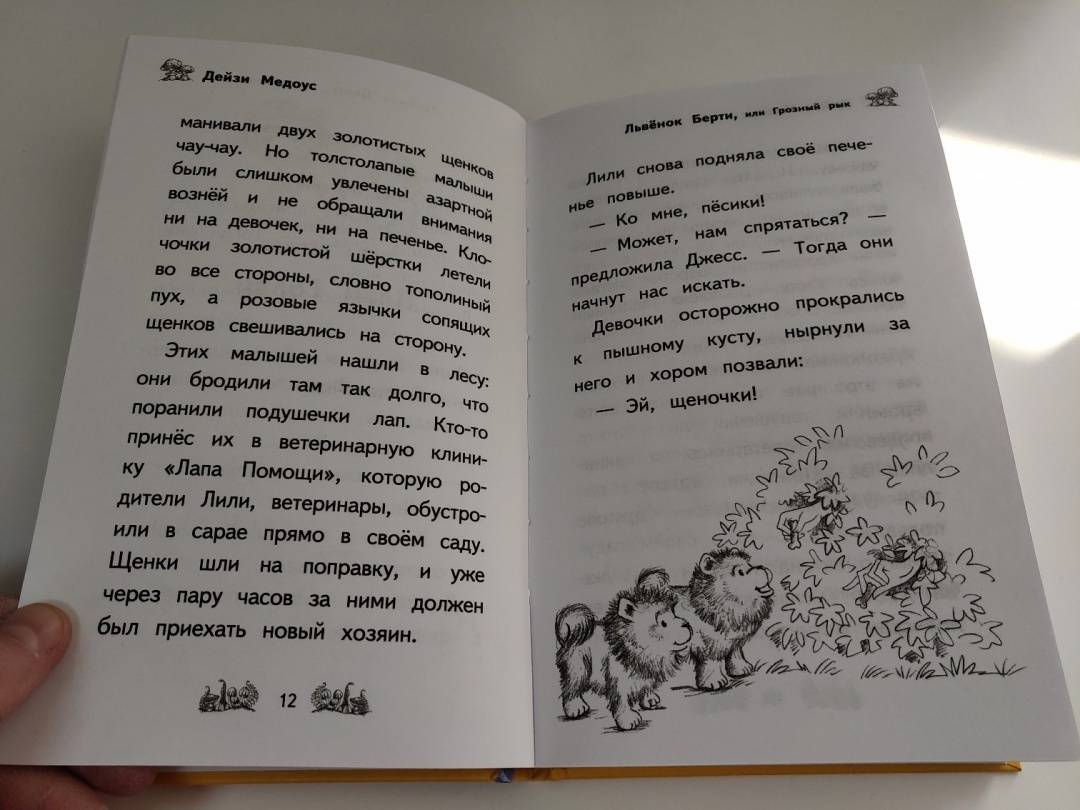 Дейзи Медоус
манивали двух золотистых щенков
чау-чау. Но толстолапые малыши
были слишком увлечены азартной
вознёй и не обращали внимания
ни на девочек, ни на печенье. Кло-
чочки золотистой шёрстки летели
во все стороны, словно тополиный
пух, а розовые язычки сопящих
щенков свешивались на сторону.
Этих малышей нашли в лесу:
они бродили там так долго, что
поранили подушечки лап. Кто-то
принёс их в ветеринарную клини-
ку «Лапа Помощи», которую ро-
дители Лили, ветеринары, обустро-
или в сарае прямо в своём саду.
Щенки шли на поправку, и уже
через пару часов за ними должен
был приехать новый хозяин.
12
Львёнок Берти, или Грозный рык
Лили снова подняла своё пече-
нье повыше.
— Ко мне, пёсики!
— Может, нам спрятаться? —
предложила Джесс. — Тогда они
начнут нас искать.
Девочки осторожно прокрались
к пышному кусту, нырнули за
него и хором позвали:
— Эй, щеночки!